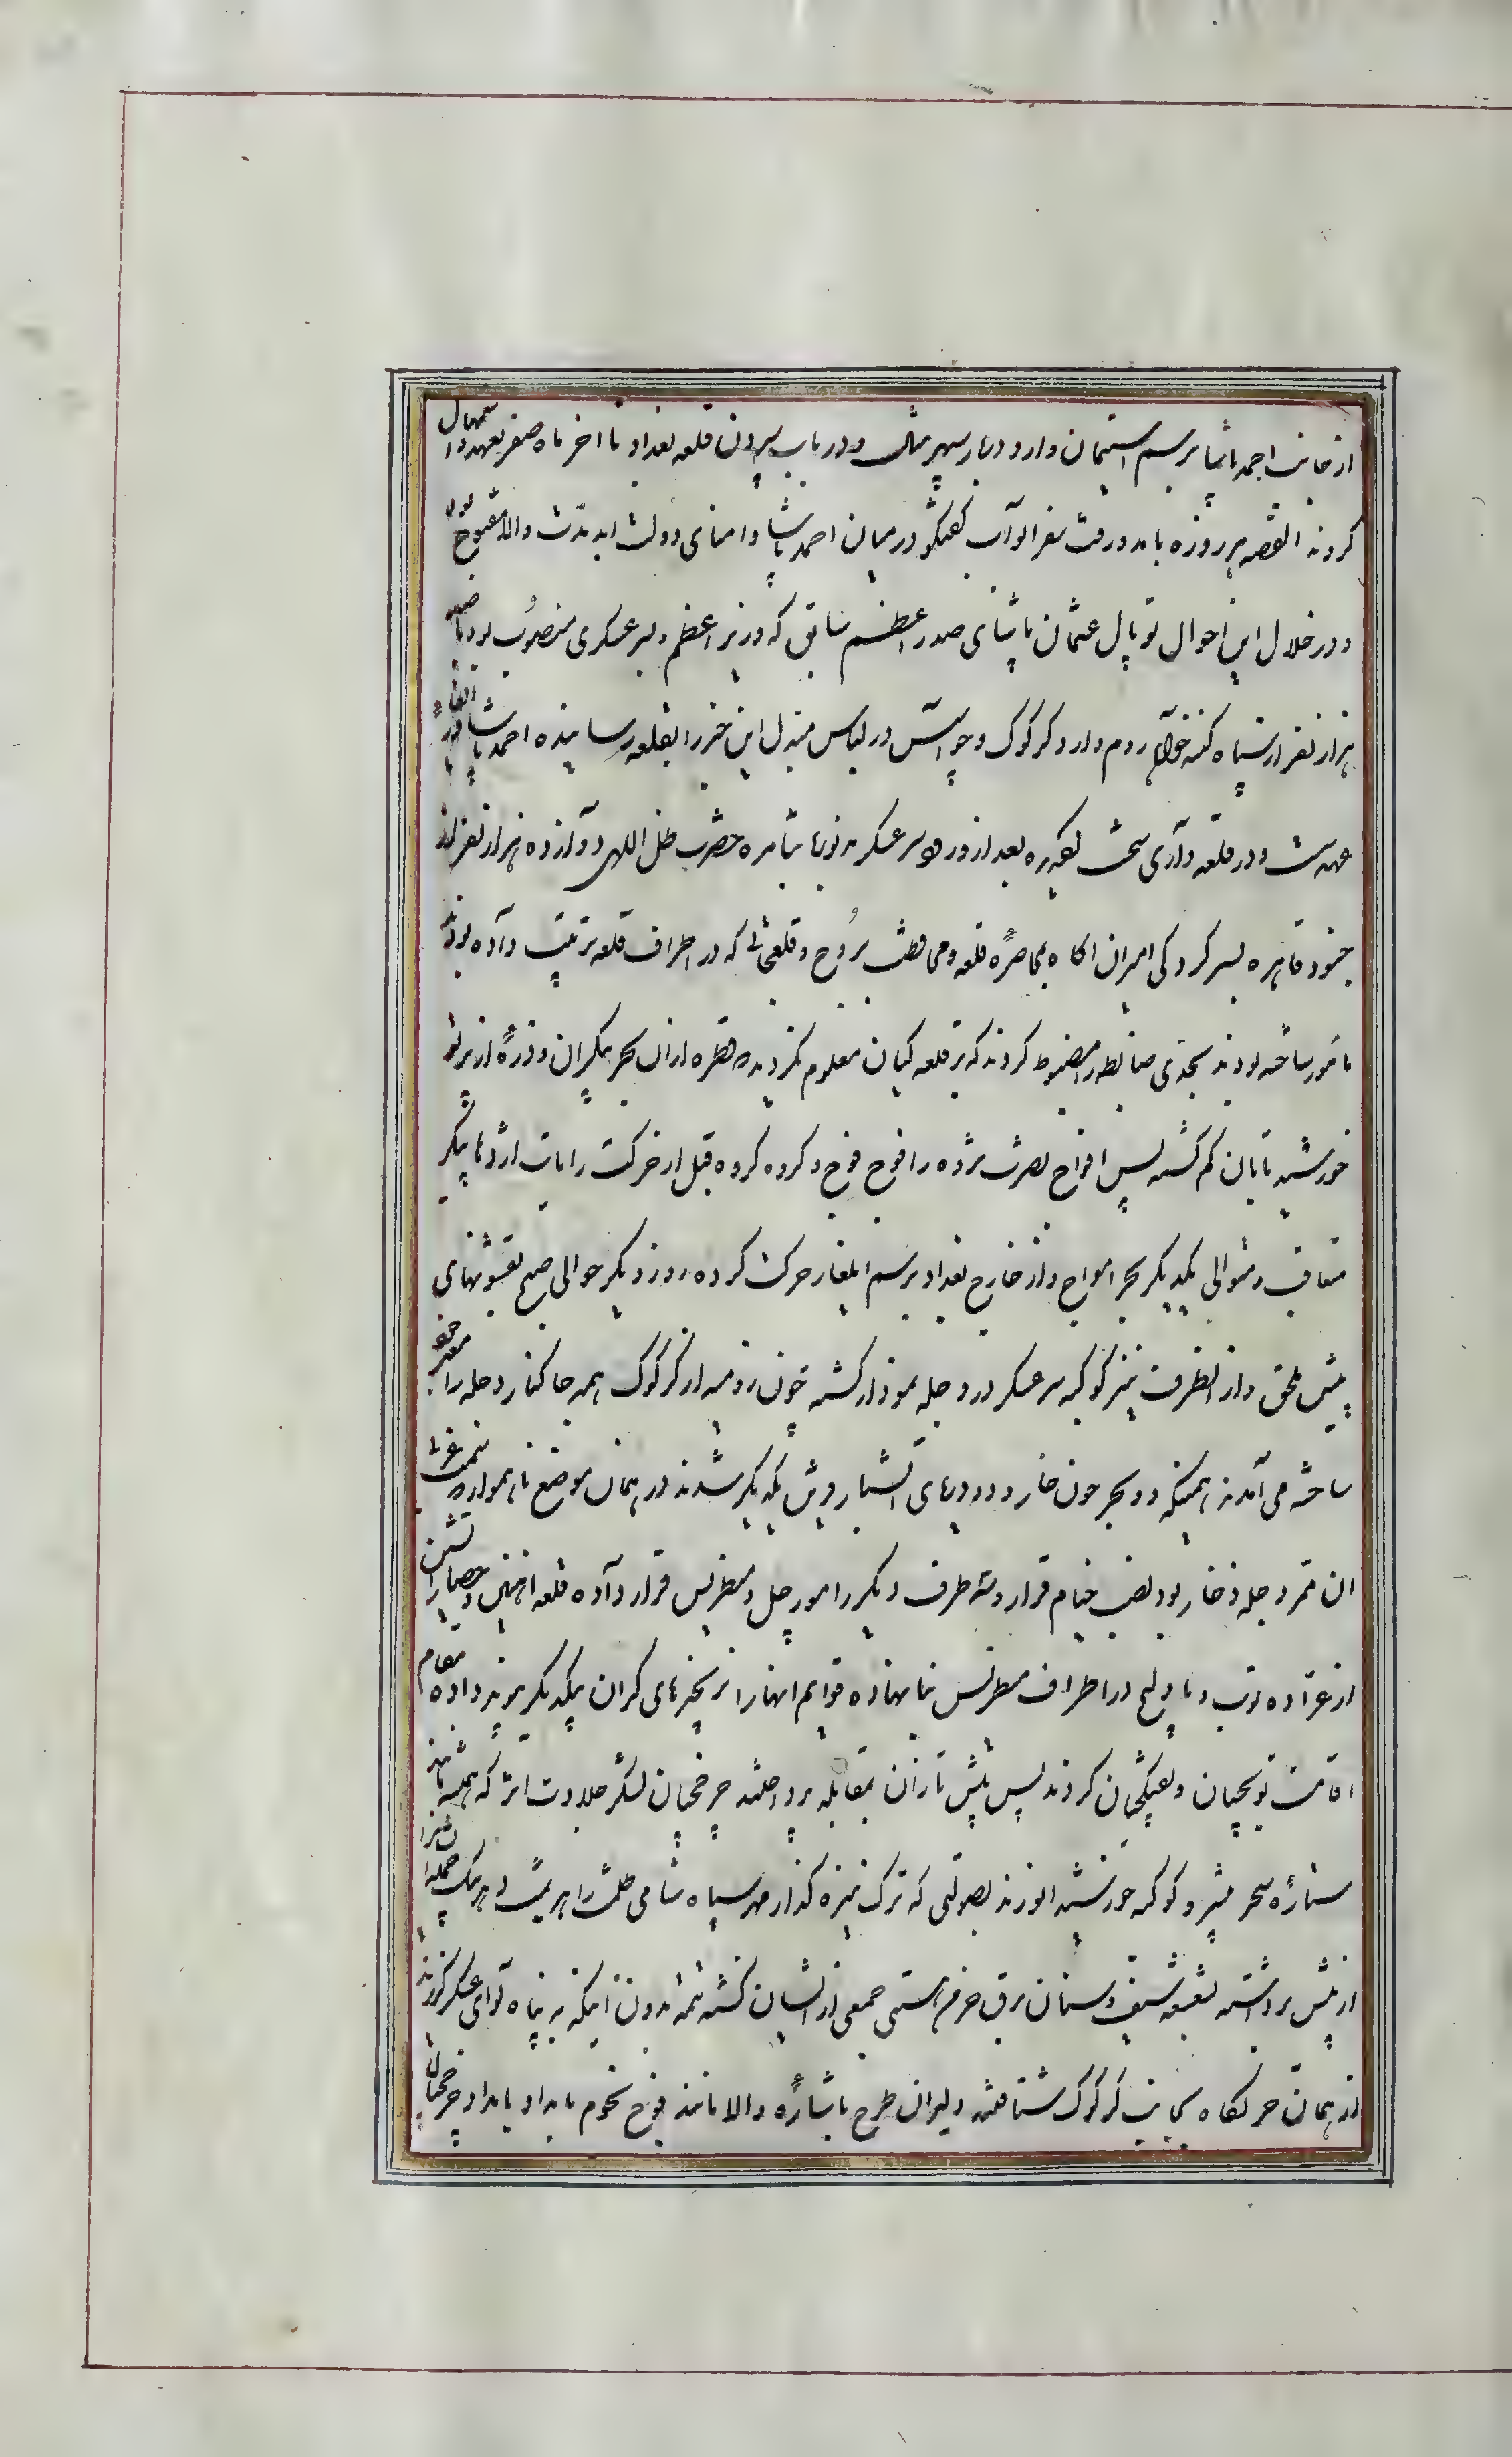 از جانب احمد پاشا برسم استیمان وارد دربار سپهر مثال و در باب سپردن قلعه بغداد تا اخر ماه صفر تعهد و استمهال
کردند القصه هر روزه بامد و رفت سفرا ابواب گفتگو در میان احمد پاشا و امنای دولت ابد مدت والا مفتوح بود
و در خلال این احوال توپال عثمان پاشای صدر اعظم سابق که وزیر اعظم و بسر عسکری منصوب بود با صد
هزار نفر از سپاه کینه خواه روم وارد کرکوک و جواسیس در لباس مبدل این خبر را بقلعه رسانیده احمد پاشا را
عهد سست و در قلعه داری سخت بعد از ورود سر عسکر حضرت ظل اللهی دوازده هزار نفر از
جنود قاهره بسر کردگی امیران اگاه بمحاصره قلعه و محافظت بروج و قلعجاتی که در اطراف قلعه ترتیب داده بودند
مامور ساخته بودند بحدی ضابطه را مضبوط کردند که بر قلعه گیان معلوم نگردید که قطره ازان بحر بیکران و ذره از پرتو
خورشید تابان کم گشته پس افواج نصرت پژوه را فوج فوج و گروه گروه قبل از حرکت رایات اژدها پیکر
متعاقب و متوالی یکدیگر بحر امواج و از خارج بغداد برسم ایلغار حرکت کرده روز دیگر حوالی صبح بقشونهای
پیش ملحق و از انطرف نیز کوکبه سر عسکر در دجله نمودار گشته چون رومیه از کرکوک همه جا کنار دجله را معبر
ساخته می آمدند همینکه دو بحر چون خار و دو دریای اتشبار دوش یکدیگر شدند در همان موضع ناهموار سمت غربی
ان ممر دجله ذخار بود نصب خیام قرار و سه طرف دیگر را مورچل و مطریس قرار داده قلعه اهنین و حصار اتشین
از عراده توپ و بادلیج در اطراف مطریس بنا نهاده قوایم انها را بزنجیرهای گران بیکدیگر پیوند داده مقام
اقامت توپچیان و تفنگچیان کردند پس پیش تازان بمقابله پرداختند چرخچیان لشکر جلادت اثر که همیشه مانند
ستاره سحر پیشرو کوکبه خورشید انورند بصولتی که ترک نیزه گذار مهر سپاه شامی ظلمت را هزیمت دهد بیک حمله
از پیش برداشته بشعله سیف و سنان برق خرمن هستی جمعی از ایشان گشته تتمه بدون اینکه به پناه لوای عسکر گروند
از همان حربگاه بجانب کرکوک شتافتند دلیران طرح باشاره والا مانند فوج نجوم بامداد بامداد چرخچیان